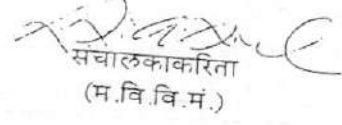 संचालकाकरिता
(म.वि.वि.मं.)